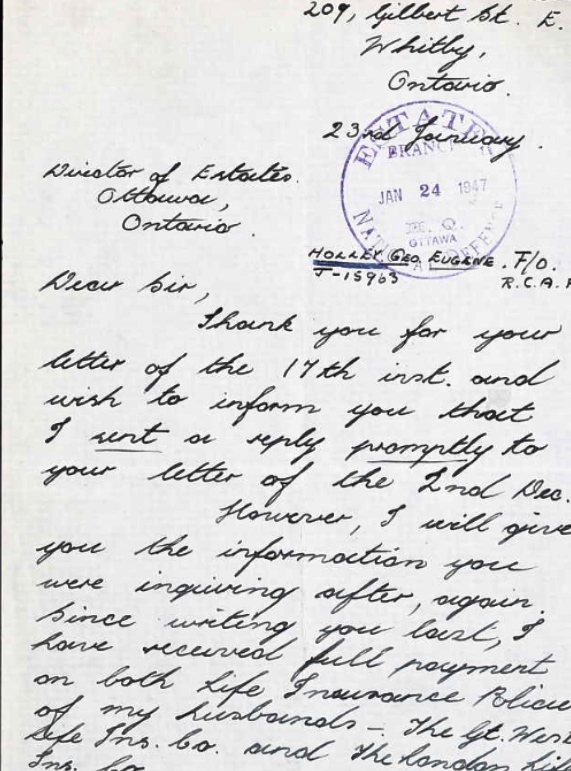 209, Gilbert St. E.
Whitby,
Ontario.
23rd January.
ESTATES
BRANCH
JAN 24 1947
OTTAWA
NATIONAL DEFENCE
Director of Estates.
Ottawa,
Ontario.
HOLLEY GEO. EUGENE. F/O.
J-15963
R.C.A.F
Dear Sir,
Thank you for your
letter of the 17th inst. and
wish to inform you that
I sent a reply promptly to
your letter of the 2nd Dec.
However, I will give
you the information you
were inquiring after, again.
Since writing you last, I
have received full payment
on both Life Insurance Policie
of my husbands - The Gt. West
Life Ins. Co. and The London Life
Ins. Co.